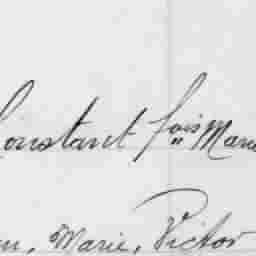 Constant f.ois Marie
en, Marie, Victor